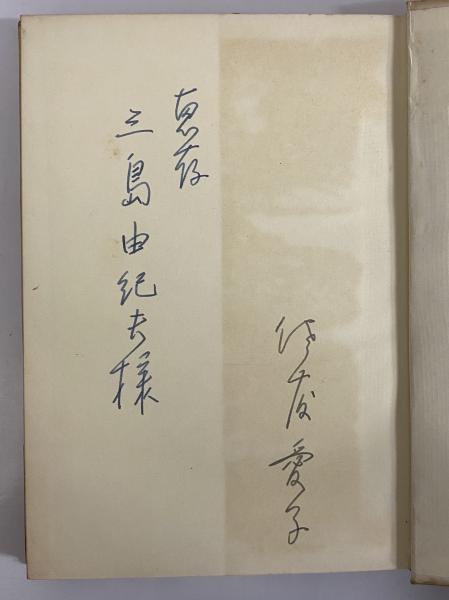 佐藤愛子
恵存
三島由紀夫様